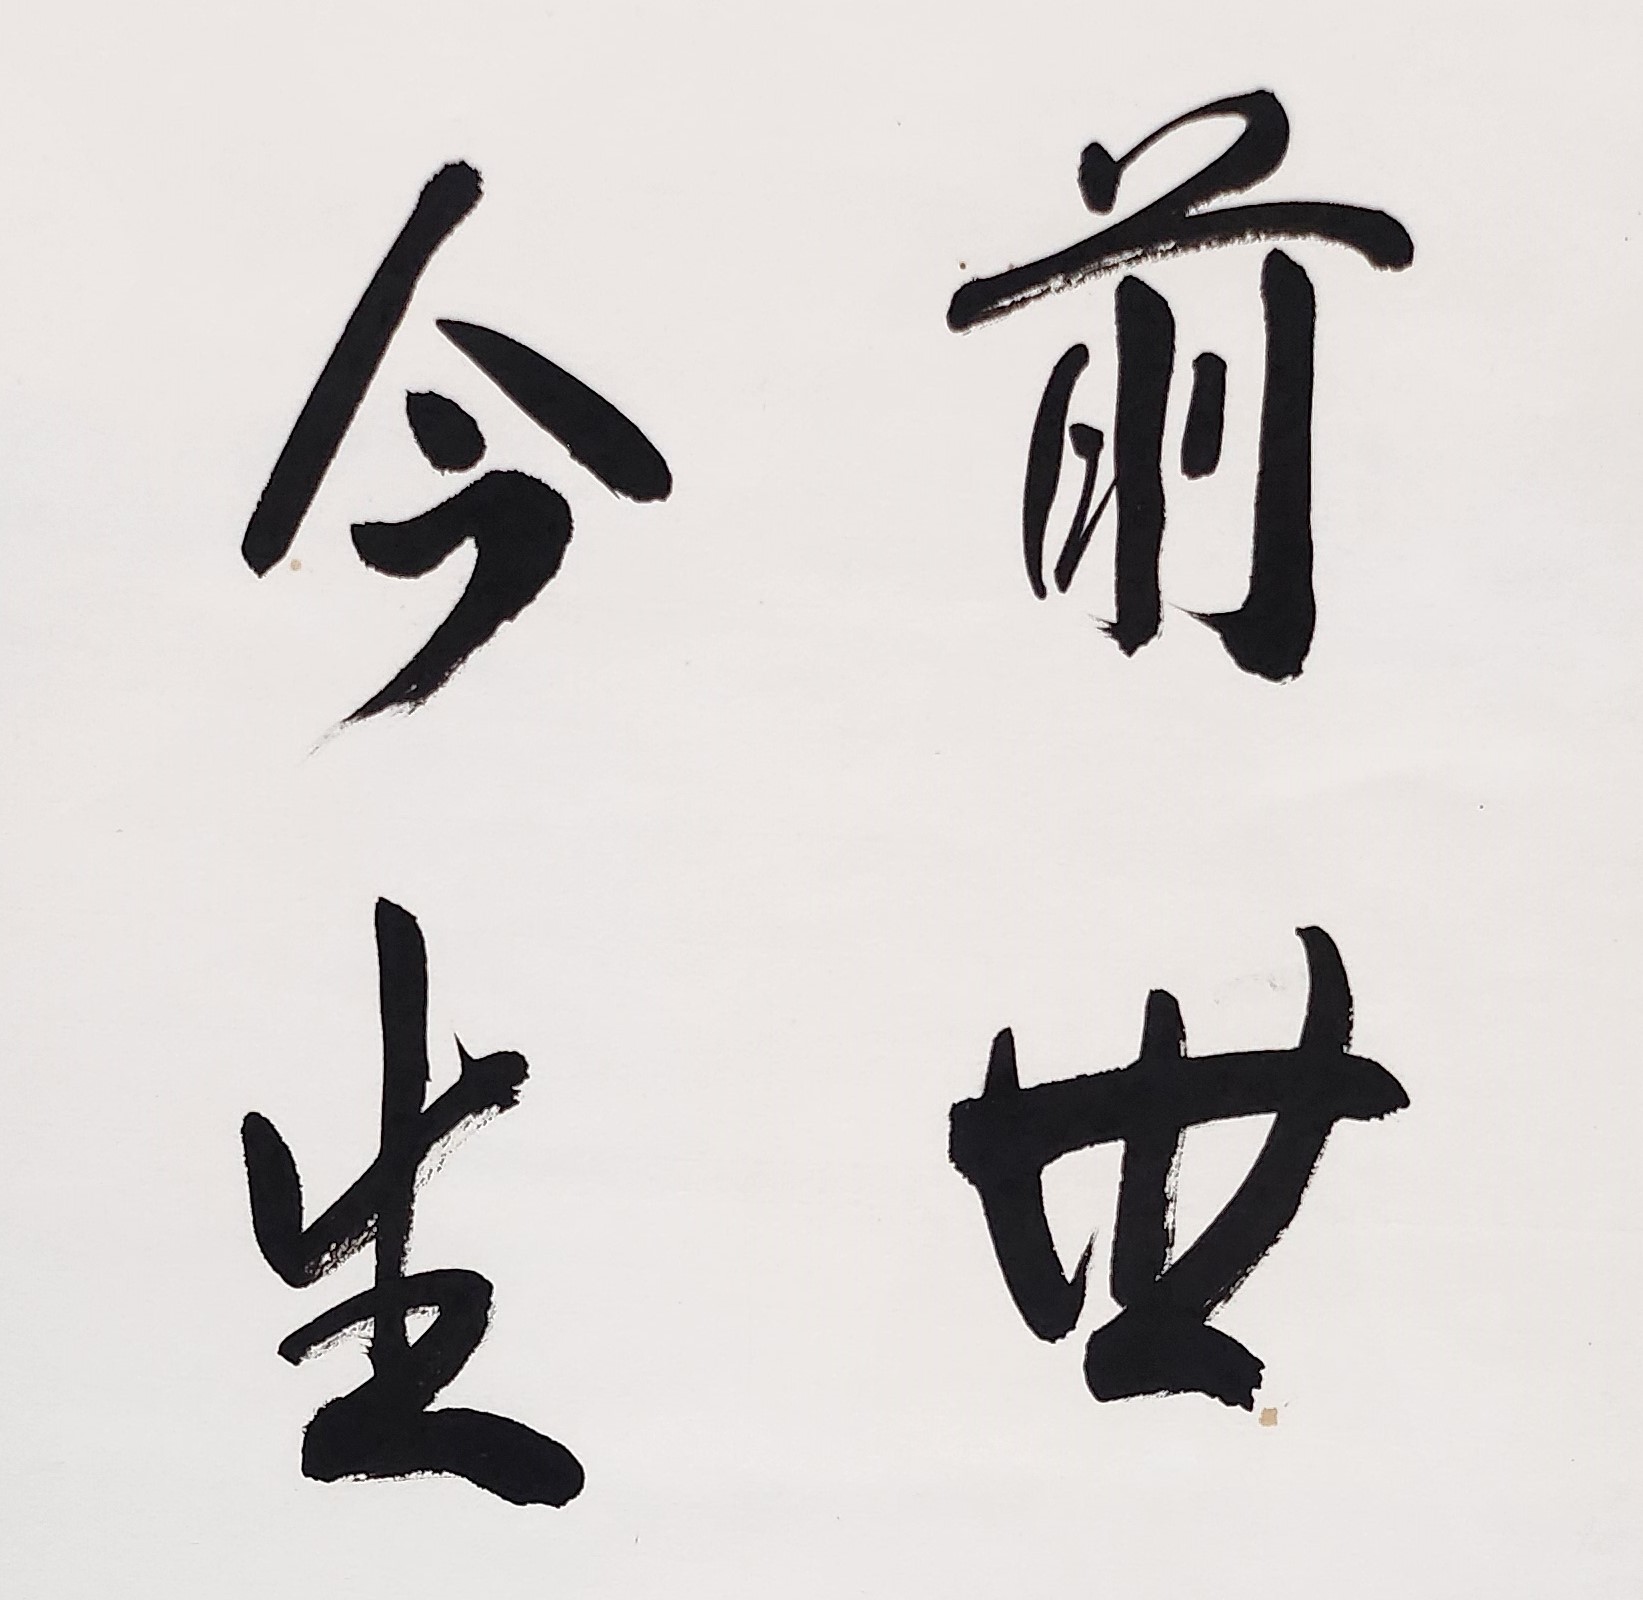 前世
今生